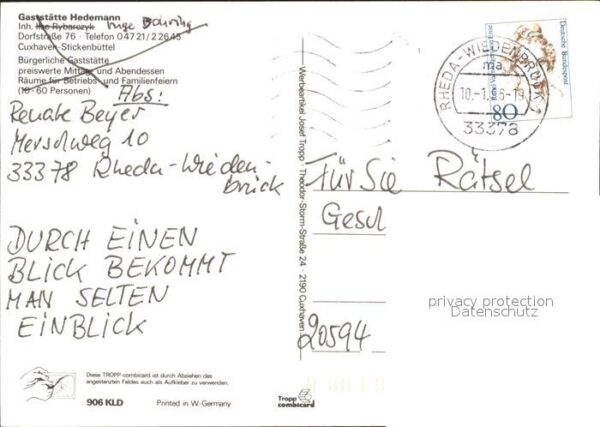 Gaststätte Hedemann
Inh. Ilse Rybarczyk Inge Döhring
Dorfstraße 76 · Telefon 04721/22645
Cuxhaven-Stickenbüttel
Bürgerliche Gaststätte
preiswerte Mittag- und Abendessen
Räume für Betriebs- und Familienfeiern
(10 - 60 Personen)
Abs:
Renate Beyer
Merschweg 10
33378 Rheda-Wieden-
brück
DURCH EINEN
BLICK BEKOMMT
MAN SELTEN
EINBLICK
Diese TROPP-combicard ist durch Abziehen des
angestanzten Feldes auch als Aufkleber zu verwenden.
906 KLD Printed in W.-Germany
Tropp
combicard
Werbeartikel Josef Tropp · Theodor-Storm-Straße 24 · 2190 Cuxhaven
Deutsche Bundespost
80
RHEDA-WIEDENBRÜCK
ma
33378
Für Sie Rätsel
Gesch
20594
privacy protection
Datenschutz